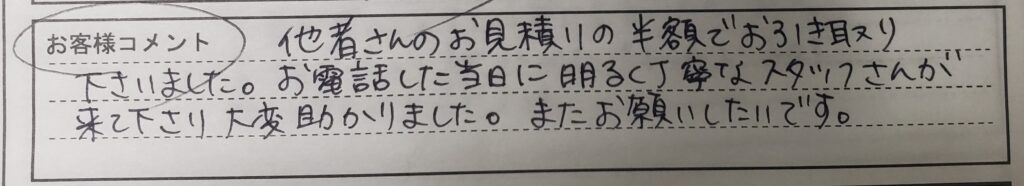 お客様コメント 他者さんのお見積りの半額でお引き取り
下さいました。お電話した当日に明るく丁寧なスタッフさんが
来て下さり大変助かりました。またお願いしたいです。